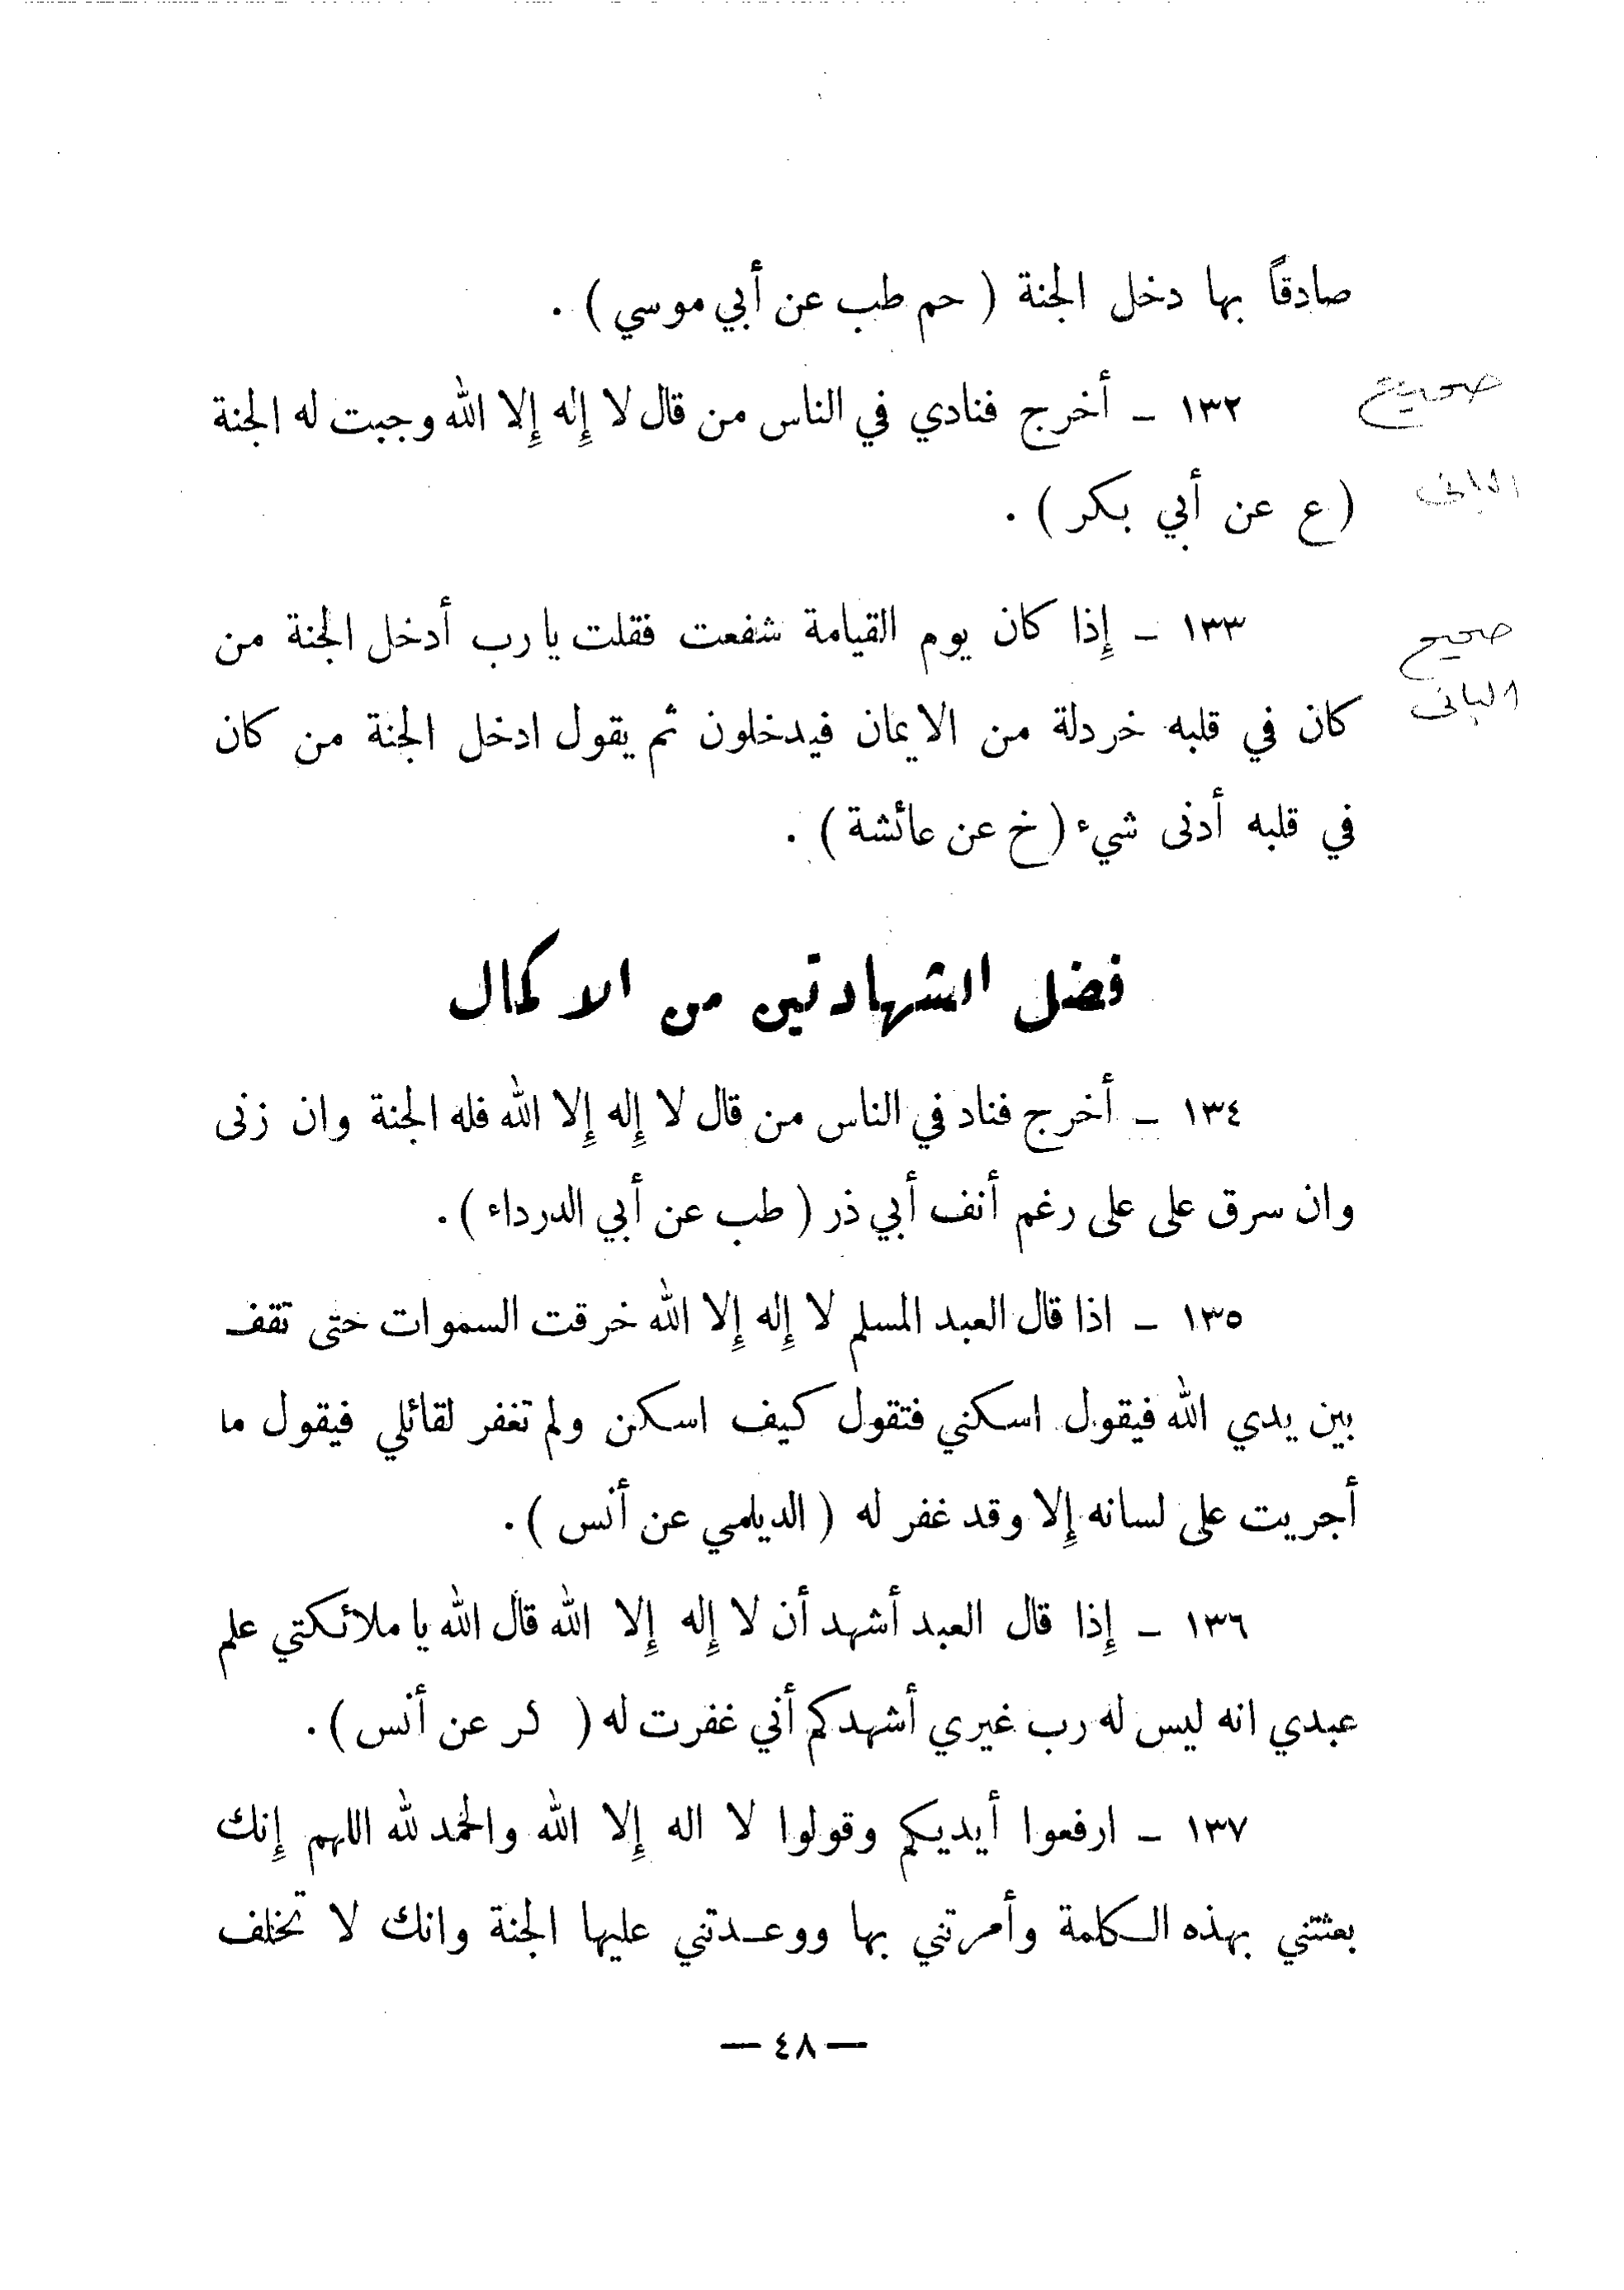 صادقاً بها دخل الجنة ( حم طب عن أبي موسي ) .
١٣٢ ـ أخرج فنادي في الناس من قال لا إله إلا الله وجبت له الجنة
صحيح
( ع عن أبي بكر ) .
البانى
١٣٣ ـ إذا كان يوم القيامة شفعت فقلت يا رب أدخل الجنة من
صحيح
كان في قلبه خردلة من الايمان فيدخلون ثم يقول ادخل الجنة من كان
البانى
في قلبه أدنى شيء ( خ عن عائشة ) .
فضل الشهادتين من الاكمال
١٣٤ ـ أخرج فناد في الناس من قال لا إله إلا الله فله الجنة وان زنى
وان سرق على على رغم أنف أبي ذر ( طب عن أبي الدرداء ) .
١٣٥ ـ اذا قال العبد المسلم لا إله إلا الله خرقت السموات حتى تقف
بين يدي الله فيقول اسكني فتقول كيف اسكن ولم تغفر لقائلي فيقول ما
أجريت على لسانه إلا وقد غفر له ( الديلمي عن أنس ) .
١٣٦ ـ إذا قال العبد أشهد أن لا إله إلا الله قال الله يا ملائكتي علم
عبدي انه ليس له رب غيري أشهدكم أني غفرت له ( كر عن أنس ) .
١٣٧ ـ ارفعوا أيديكم وقولوا لا اله إلا الله والحمد لله اللهم إنك
بعثتني بهذه الكلمة وأمرتني بها ووعدتني عليها الجنة وانك لا تخلف
— ٤٨ —